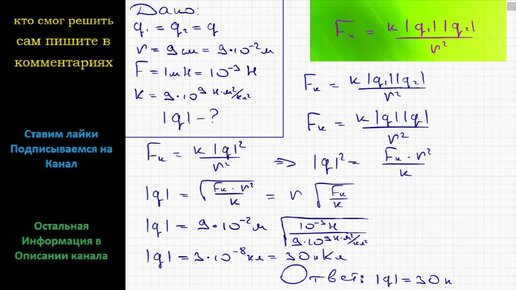 кто смог решить
сам пишите в
комментариях
Ставим лайки
Подписываемся на
Канал
Остальная
Информация в
Описании канала
Дано:
q₁ = q₂ = q
r = 9см = 9·10⁻² м
F = 1мН = 10⁻³ Н
k = 9·10⁹ Н·м²/Кл²
|q| - ?
Fк = k |q₁| |q₂| / r²
Fк = k |q₁| |q₂| / r²
Fк = k |q| |q| / r²
Fк = k |q|² / r² => |q|² = Fк · r² / k
|q| = √(Fк · r² / k) = r √(Fк / k)
|q| = 9·10⁻² м √(10⁻³ Н / 9·10⁹ Н·м²/Кл²)
|q| = 3·10⁻⁸ Кл = 30нКл
Ответ: |q| = 30н